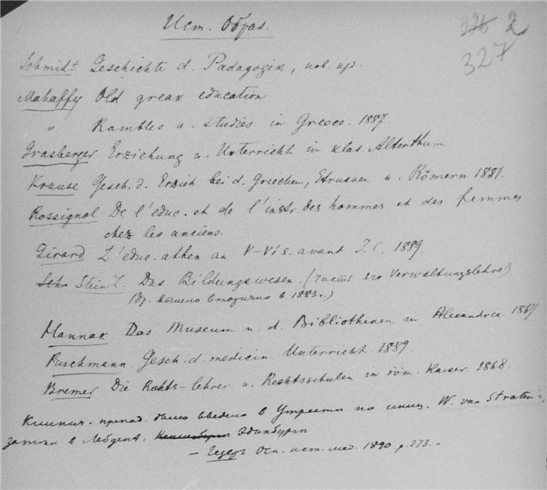 Ист. Образ.
326 2
327
Schmidt Geschichte d. Pädagogik, нов. изд.
Mahaffy Old greax education
" Rambles a. studies in Greece. 1887
Grasberger Erziehung u. Unterricht in klas Alterthum
Krause Gesch. d. Erzieh bei d. Griechen, Etrusken u. Römern 1851.
Rossignol De l'éduc. et de l'instr. des hommes et des femmes
chez les anciens.
Girard L'éduc. athen au V-VI s. avant J. C. 1889.
Stein L. Das Bildungswesen. (часть его Verwaltungslehre)
в 1883 г.)
Hannak. Das Museum u. d. Bibliotheken in Alexandria 1867
Puschmann. Gesch. d. medicin. Unterricht. 1889
Bremer Die Rechts-lehrer u. Rechtsschulen in röm. Kaiser. 1868.
Клинич. препод. было введено в Утрехте по иниц. W. van Straten'а,
затем в Лейдене, Эдинбурге
Ист. мед. 1890, p. 273. -